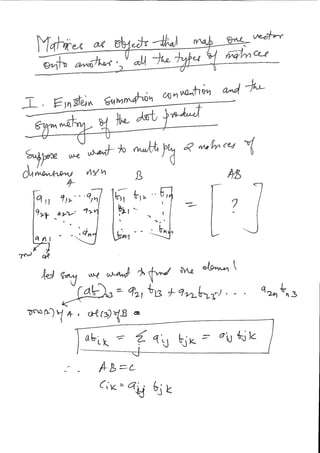 Matrices as objects that map one vector
onto another; all the types of matrices
I. Einstein summation convention and the
symmetry of the dot product
Suppose we want to multiply 2 matrices of
dimensions n×n
A B AB
[a11 a12 ... a1n] [b11 b12 ... b1n] = [ ? ]
a21 a22 a2n b21
an1 ... ann bn1 ... bnn
row col
let say we want to find one element
(ab)23 = a21 b13 + a22 b23 + ... a2n bn3
row(2) of A . col(3) of B =
abik = Σj aij bjk = aij bjk
∴ AB = C
Cik = aij bjk